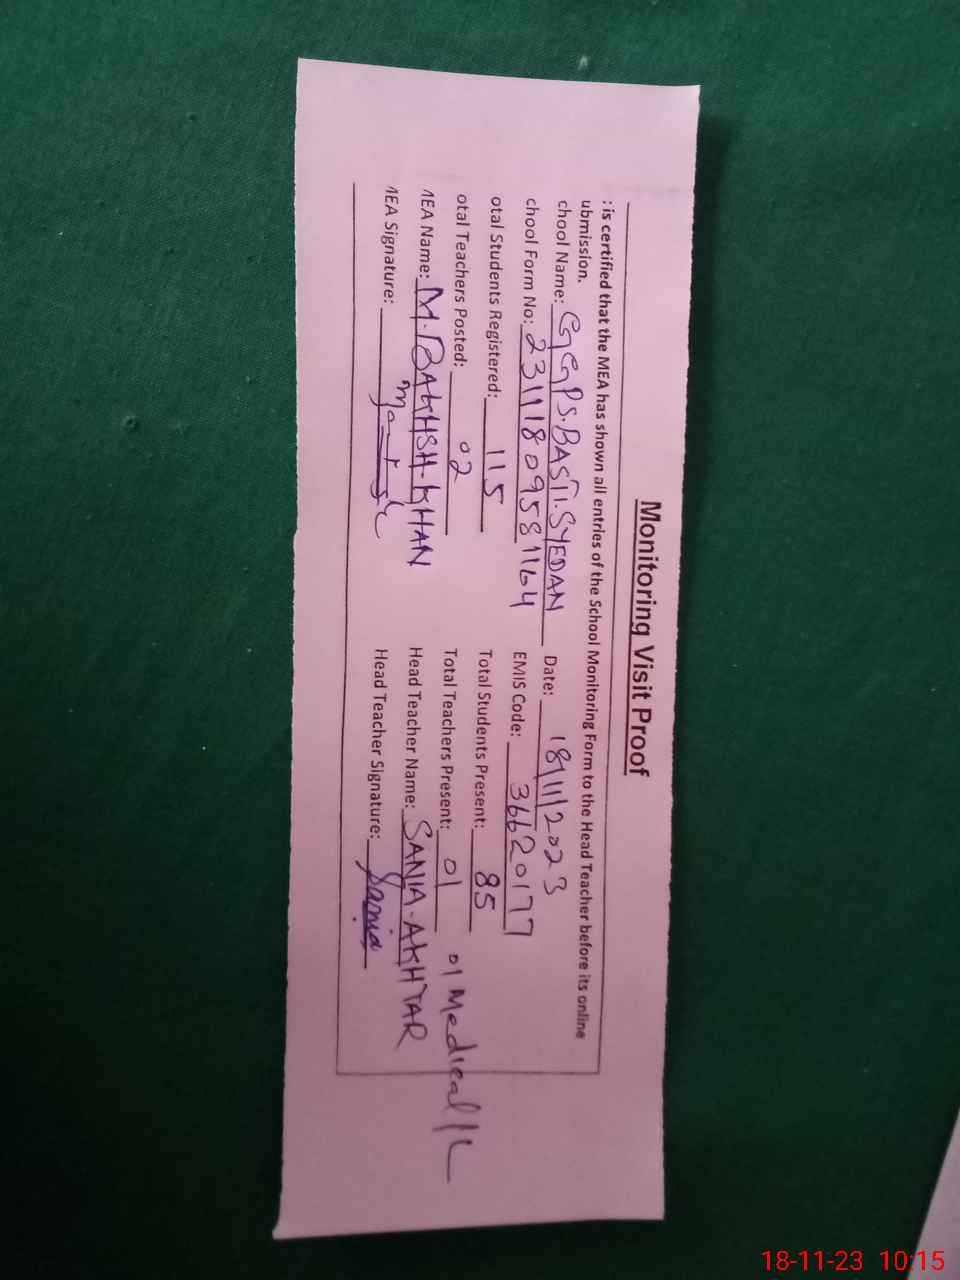 Monitoring Visit Proof
: is certified that the MEA has shown all entries of the School Monitoring Form to the Head Teacher before its online
ubmission.
chool Name: GGPS.BASTI.SYEDAN Date: 18/11/2023
chool Form No: 23111809581164 EMIS Code: 36620177
otal Students Registered: 115 Total Students Present: 85
otal Teachers Posted: 02 Total Teachers Present: 01 01 Medical/L
MEA Name: M.BAKHSH.KHAN Head Teacher Name: SANIA-AKHTAR
MEA Signature: Head Teacher Signature: Sania
18-11-23 10:15